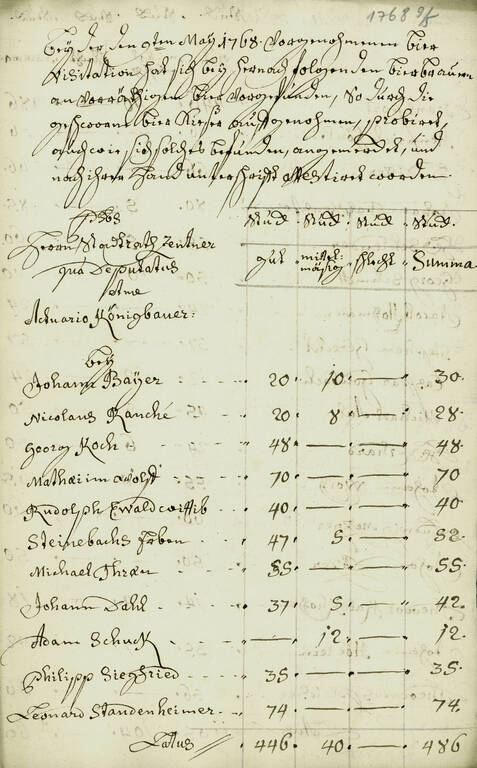 1768 9/5
Beÿ der den 9ten Maÿ 1768. Vorgenohmenen bier
Visitation hat sich beÿ hernach folgenden bierbrauern
an vorräthigem bier vorgefunden, So durch die
geschworene bier Kieser auffgenohmen, probiret,
auch wie sich solches befunden, angemercket, und
nach ihrer Handunterschrifft attestiret worden.
Pbs
Herrn Stadtrath Zentner
qua Deputatus
Actuario Königbauer:
Stück Stück Stück Stück.
gut mittel- mäsig schlecht Summa
beÿ
Johann Baÿer 20. 10. — 30.
Nicolaus Ranché 20. 8. — 28.
Georg Koch 48. — — 48.
Mathaei Wolff 70. — — 70
Rudolph Ewald wittib 40. — — 40
Steinebachs Erben 47. 5. — 52.
Michael Thraen 55. — — 55.
Johann Dahl 37. 5. — 42.
Adam Schuck — 12. — 12.
Philipp Siegfried 35. — — 35.
Leonard Standenheimer 74. — — 74.
Latus 446. 40. — 486